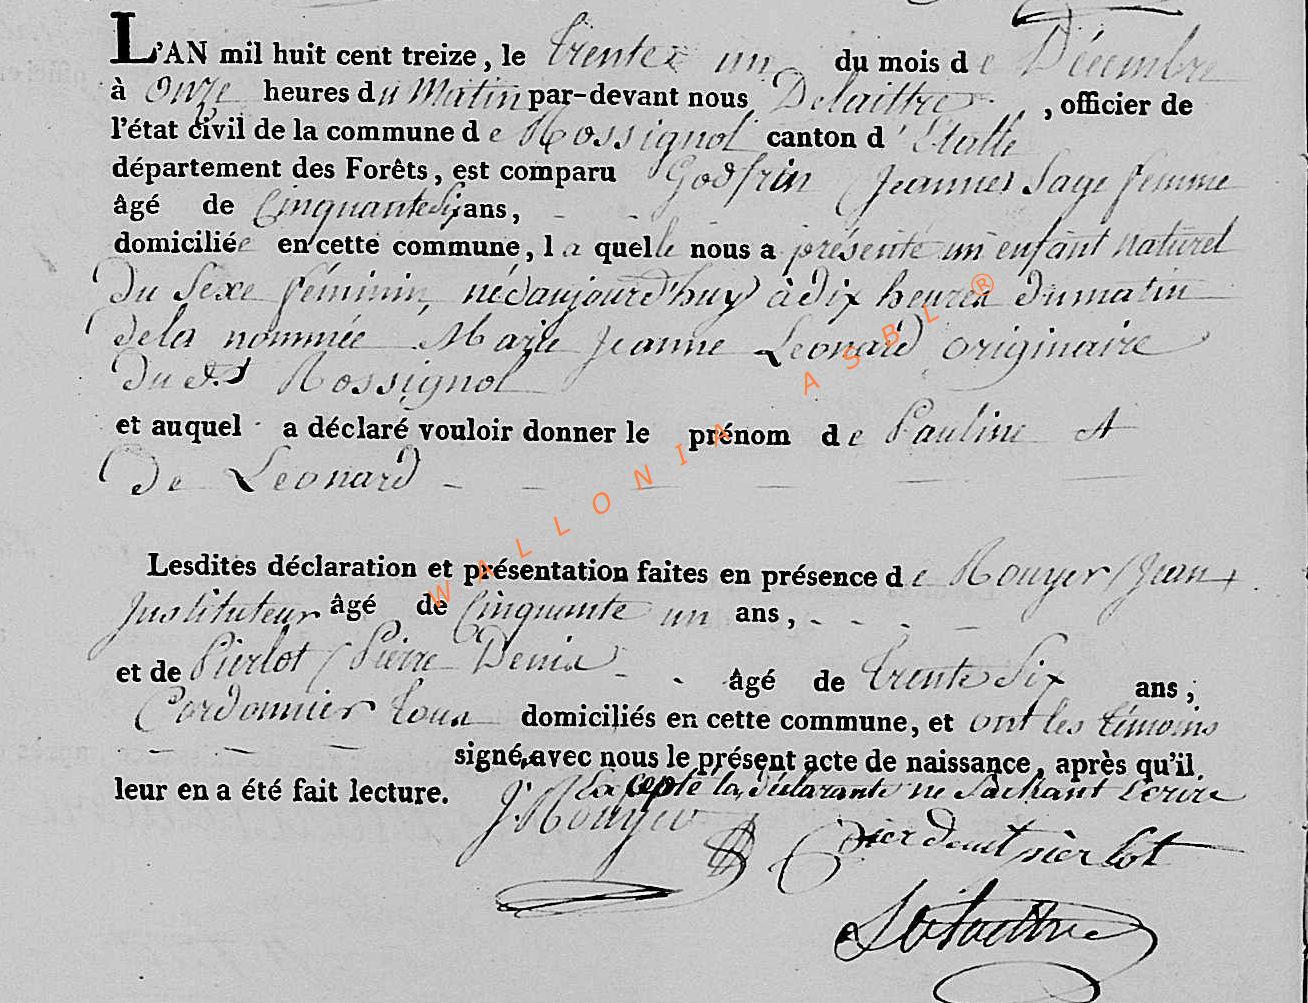 L'AN mil huit cent treize, le trente un du mois de Décembre
à onze heures du Matin par-devant nous Delaittre, officier de
l'état civil de la commune de Rossignol canton d'Etalle
département des Forêts, est comparu Godfrin Jeanne Sage femme
âgé de Cinquante Six ans,
domiciliée en cette commune, la quelle nous a présenté un enfant naturel
Du Sexe féminin, né d'aujourd'huy à dix heures du matin
de la nommée Marie Jeanne Leonard originaire
Du dt Rossignol
et auquel a déclaré vouloir donner le prénom de Pauline et
De Leonard
Lesdites déclaration et présentation faites en présence de Rouyer Jean
Instituteur âgé de Cinquante un ans,
et de Pierlot Pierre Denis âgé de trente Six ans,
Cordonnier tous domiciliés en cette commune, et ont les témoins
signé, avec nous le présent acte de naissance, après qu'il
leur en a été fait lecture. Excepté la déclarante ne Sachant Ecrire
J. Rouyer
pierlot
Delaittre
WALLONIA ASBL ®